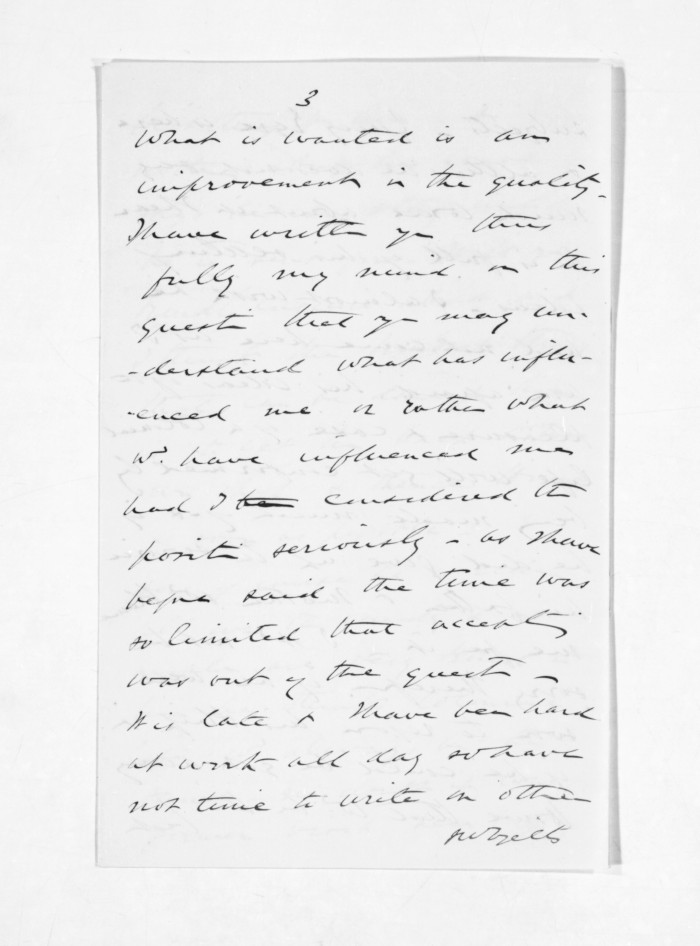 3
What is wanted is an
improvement in the quality -
I have written yr thus
fully my mind on this
questn that yr may un-
-derstand what has influ-
-enced me or rather what
wd. have influenced me
had I be considered the
positn seriously - as I have
before said the time was
so limited that acceptg
was out of the questn -
It is late & I have been hard
at work all day so have
not time to write on other
subjects